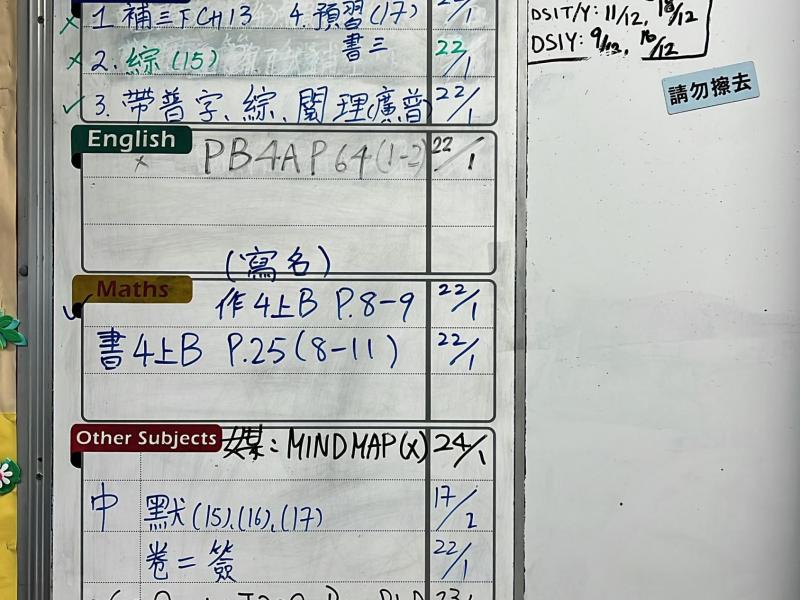 x 1. 補三下CH13 4.預習(17) 22/1
x 2. 綜(15) 書三 22/1
✓ 3. 帶普字、綜、閱理(廣普) 22/1
English
x PB4A P64(1-2) 22/1
(寫名)
Maths
✓ 作4上B P.8-9 22/1
書4上B P.25(8-11) 22/1
Other Subjects 媒: MINDMAP(x) 24/1
中 默(15),(16),(17) 17/2
卷二簽 22/1
DSIT/Y: 11/12, 18/12
DSIY: 9/12, 16/12
請勿擦去